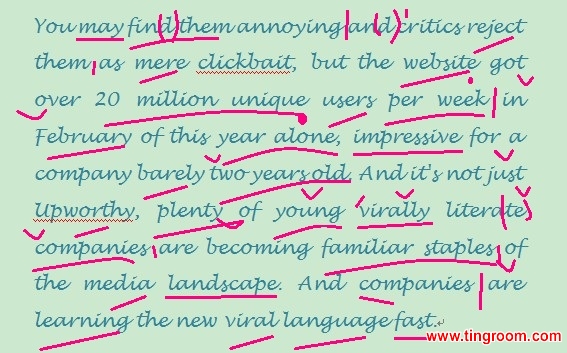 You may find them annoying and critics reject
them as mere clickbait, but the website got
over 20 million unique users per week in
February of this year alone, impressive for a
company barely two years old. And it's not just
Upworthy, plenty of young virally literate
companies are becoming familiar staples of
the media landscape. And companies are
learning the new viral language fast.
www.tingroom.com